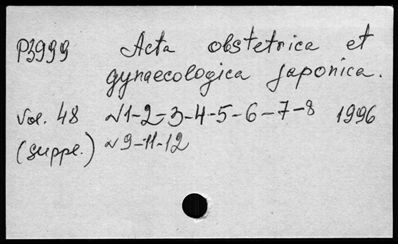 P3999 Acta obstetrica et
gynaecologica japonica.
Vol. 48 N1-2-3-4-5-6-7-8 1996
(suppl.) N9-11-12